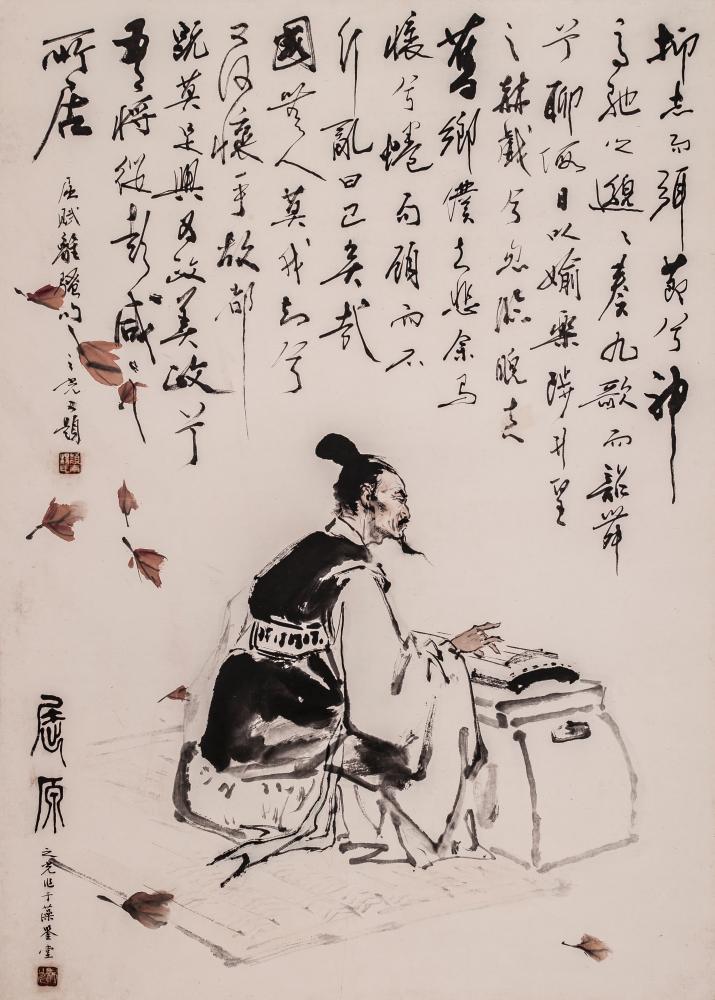 抑志而弭節兮神
高馳之邈〻奏九歌而韶舞
兮聊假日以媮樂陟升皇
之赫戲兮忽臨睨夫
舊鄉僕夫悲余馬
懷兮蜷局顧而不
行亂曰已矣哉
國無人莫我知兮
又何懷乎故都
既莫足與為政美政兮
吾將從彭咸之
所居
屈賦離騷句之光又題
屈原
之光作于藻鑒堂